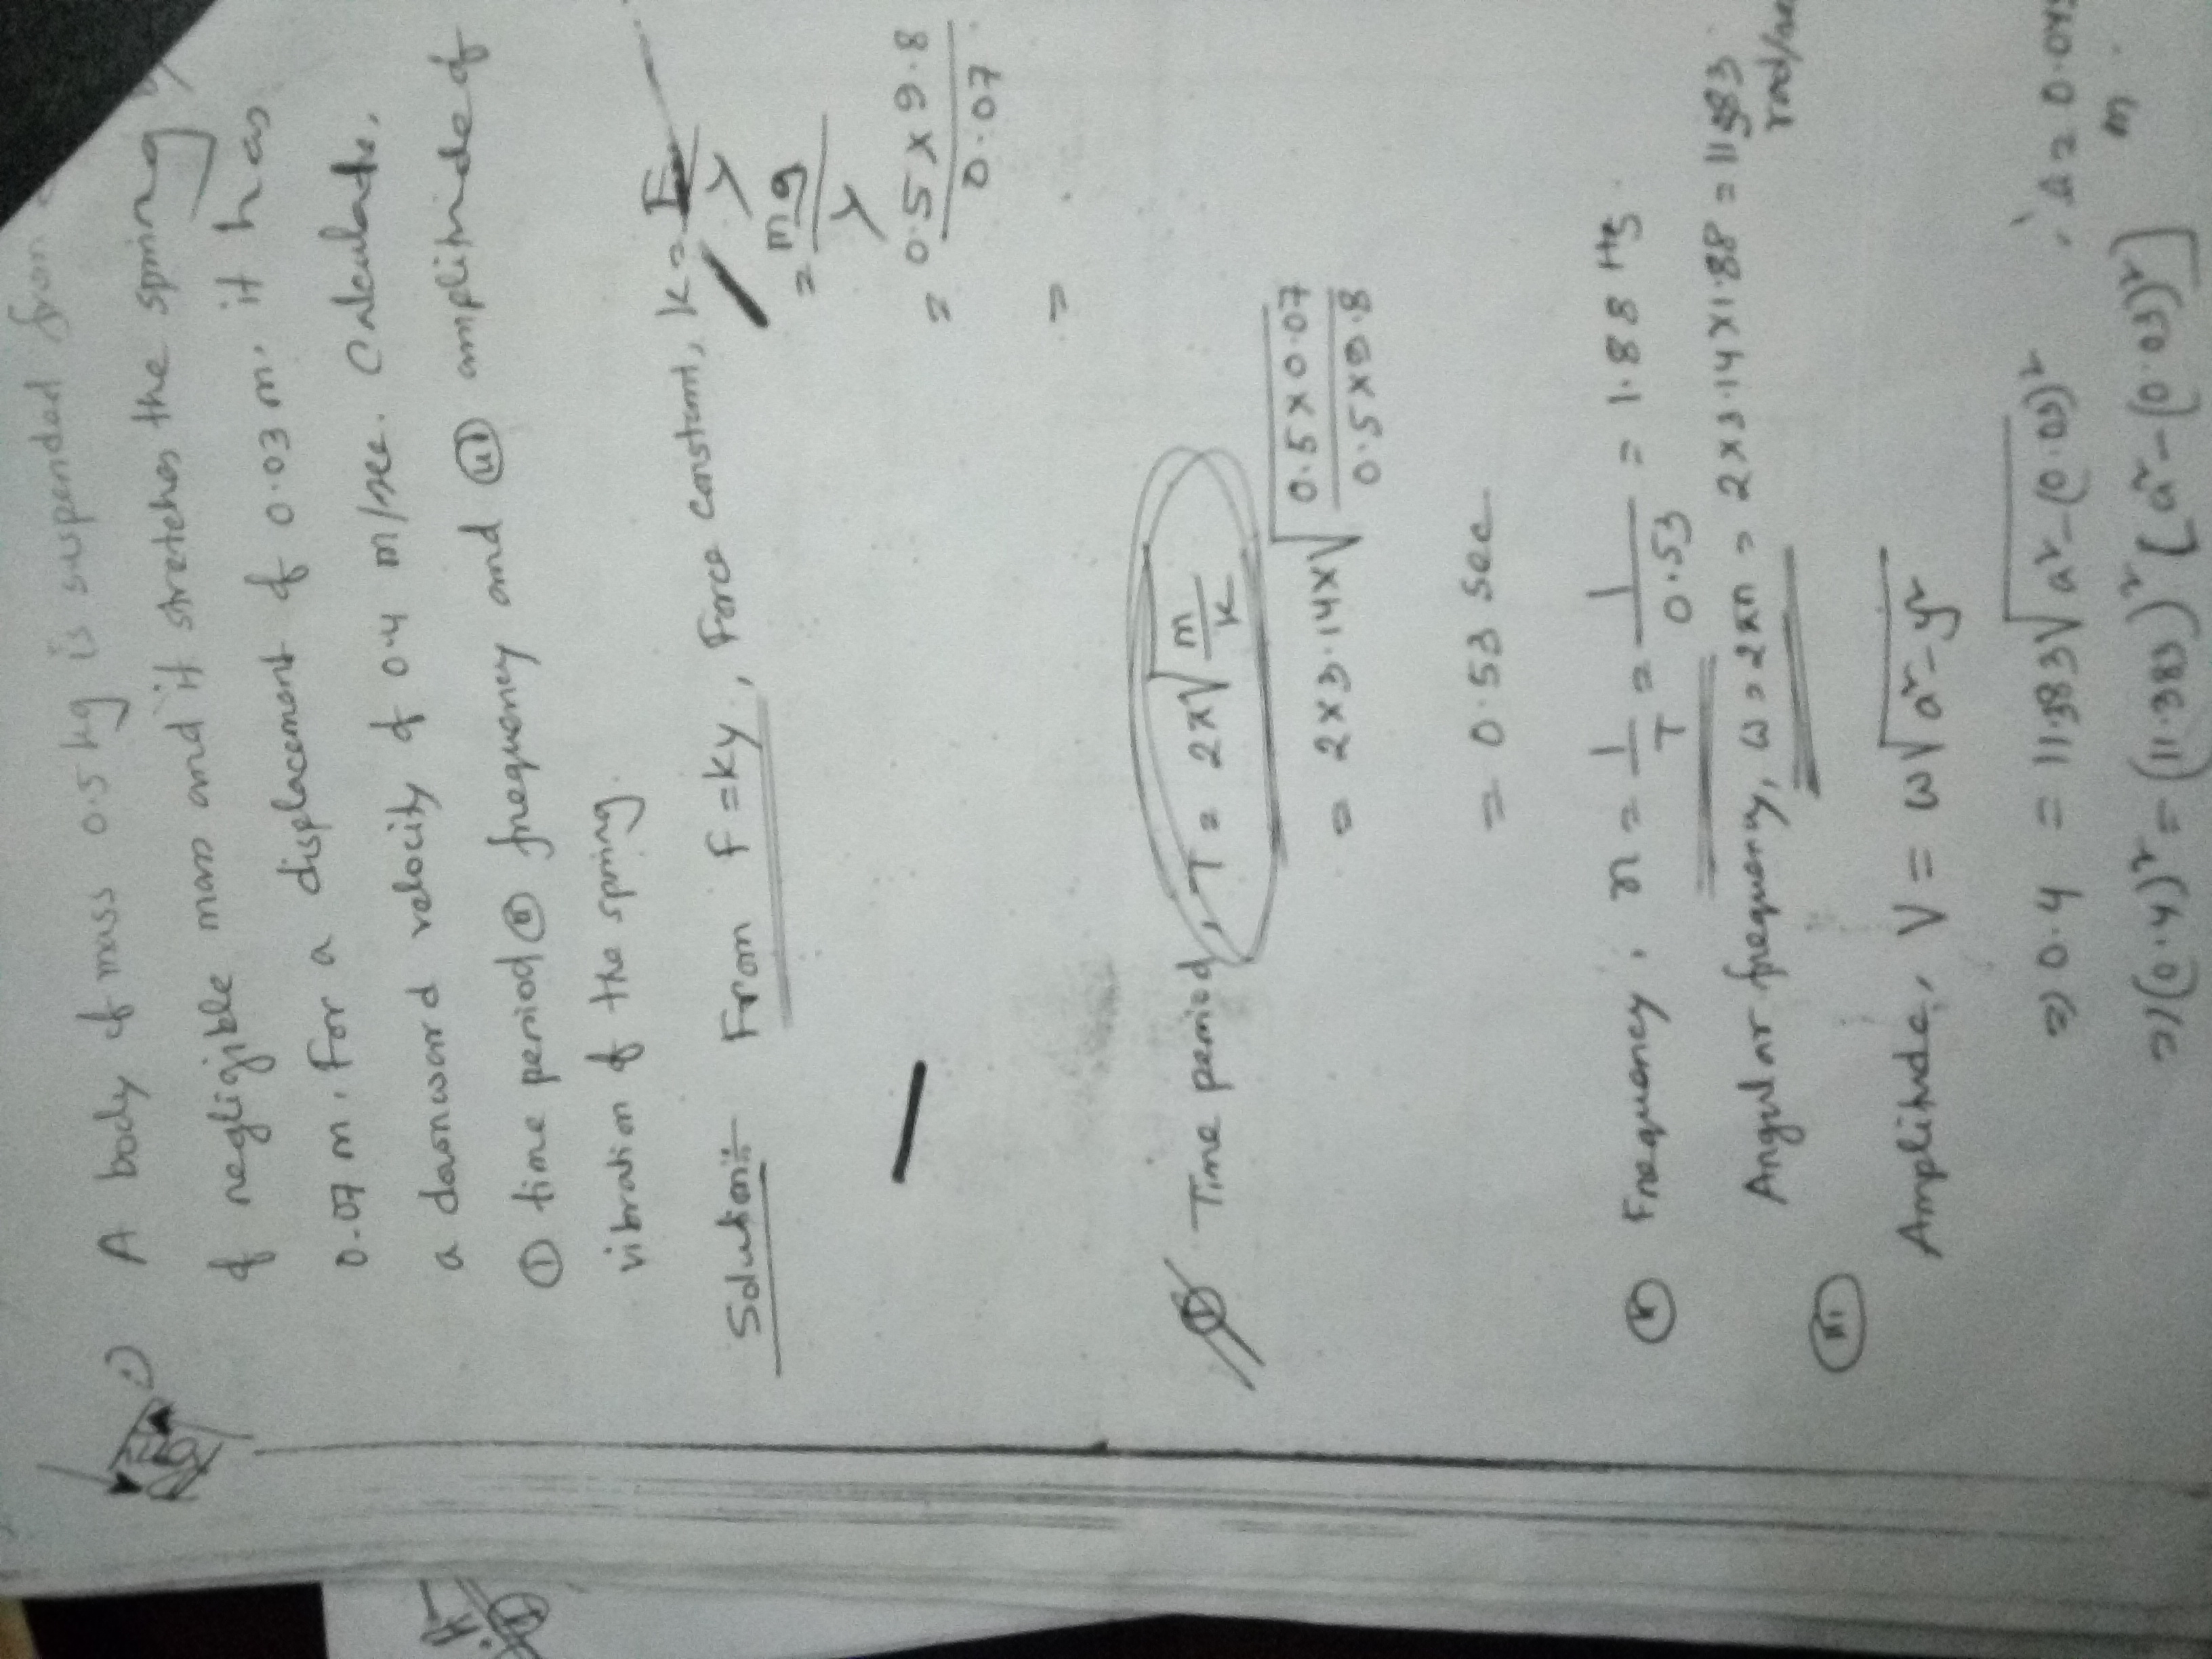 1) A body of mass 0.5 kg is suspended from
of negligible mass and it stretches the spring by
0.07 m. For a displacement of 0.03 m. it has
a downward velocity of 0.4 m/sec. Calculate,
(i) time period (ii) frequency and (iii) amplitude of
vibration of the spring.
Solution:- From F = ky, Force constant, k = F/y
= mg/y
= 0.5 x 9.8 / 0.07
=
(i) Time period, T = 2π√(m/k)
= 2 x 3.14 x √(0.5 x 0.07 / 0.5 x 9.8)
= 0.53 sec
(ii) Frequency, n = 1/T = 1/0.53 = 1.88 Hz
Angular frequency, ω = 2πn = 2 x 3.14 x 1.88 = 11.383
rad/se
(iii)
Amplitude, V = ω√(a² - y²)
=> 0.4 = 11.383√(a² - (0.03)²) a = 0.045
m
=> (0.4)² = (11.383)² [a² - (0.03)²]